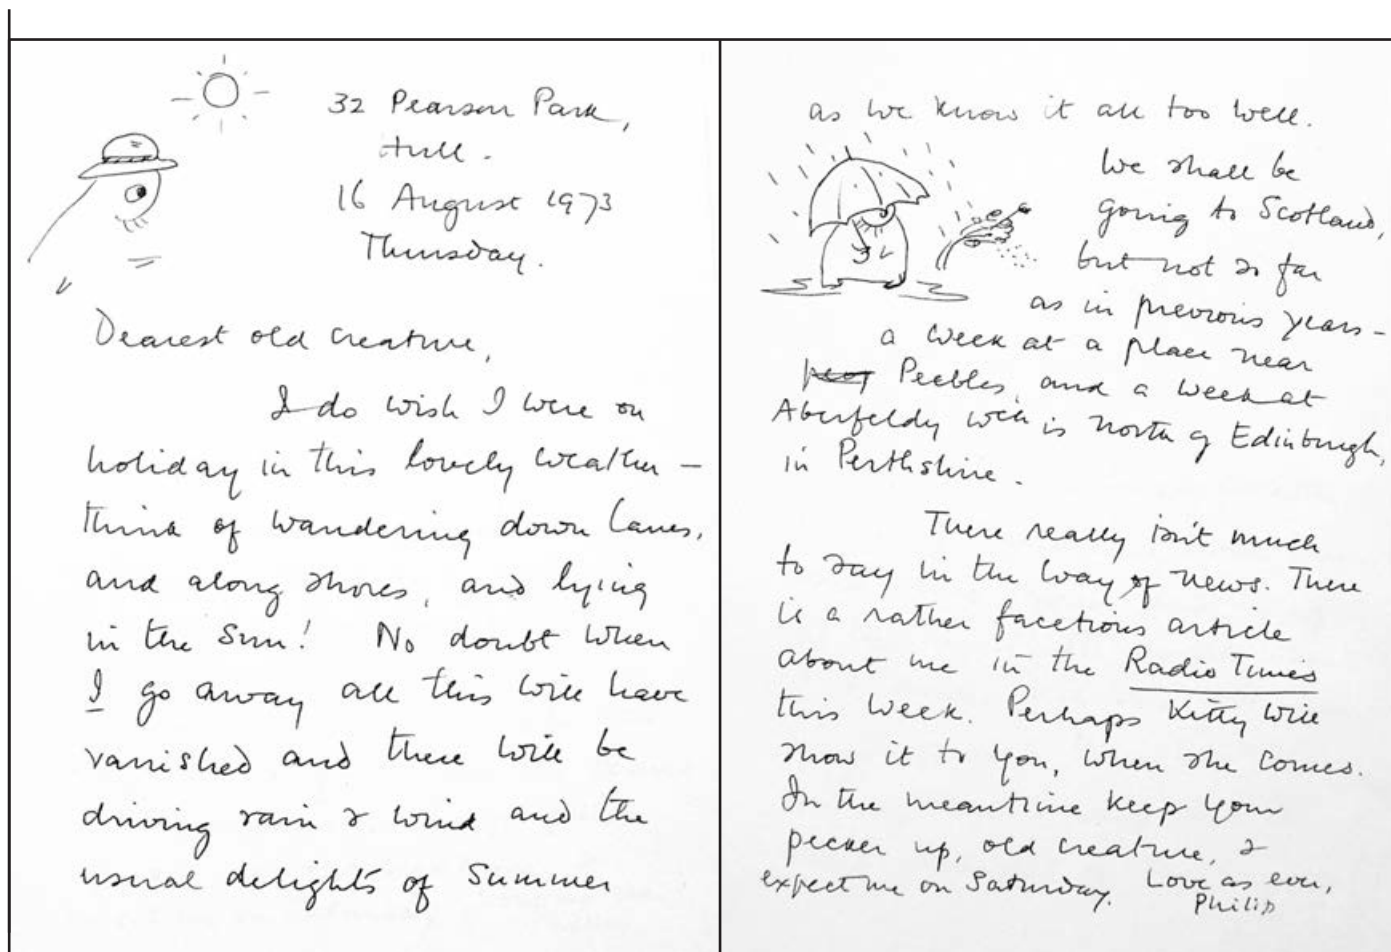 32 Pearson Park,
Hull.
16 August 1973
Thursday.
Dearest old creature,
I do wish I were on
holiday in this lovely weather –
think of wandering down lanes,
and along shores, and lying
in the sun! No doubt when
I go away all this will have
vanished and there will be
driving rain & wind and the
usual delights of summer
as we know it all too well.
We shall be
going to Scotland,
but not so far
as in previous years –
a week at a place near
Peebles, and a week at
Aberfeldy wch is north of Edinburgh,
in Perthshire.
There really isn't much
to say in the way of news. There
is a rather facetious article
about me in the Radio Times
this week. Perhaps Kitty will
show it to you, when she comes.
In the meantime keep your
pecker up, old creature, &
expect me on Saturday. Love as ever,
Philip